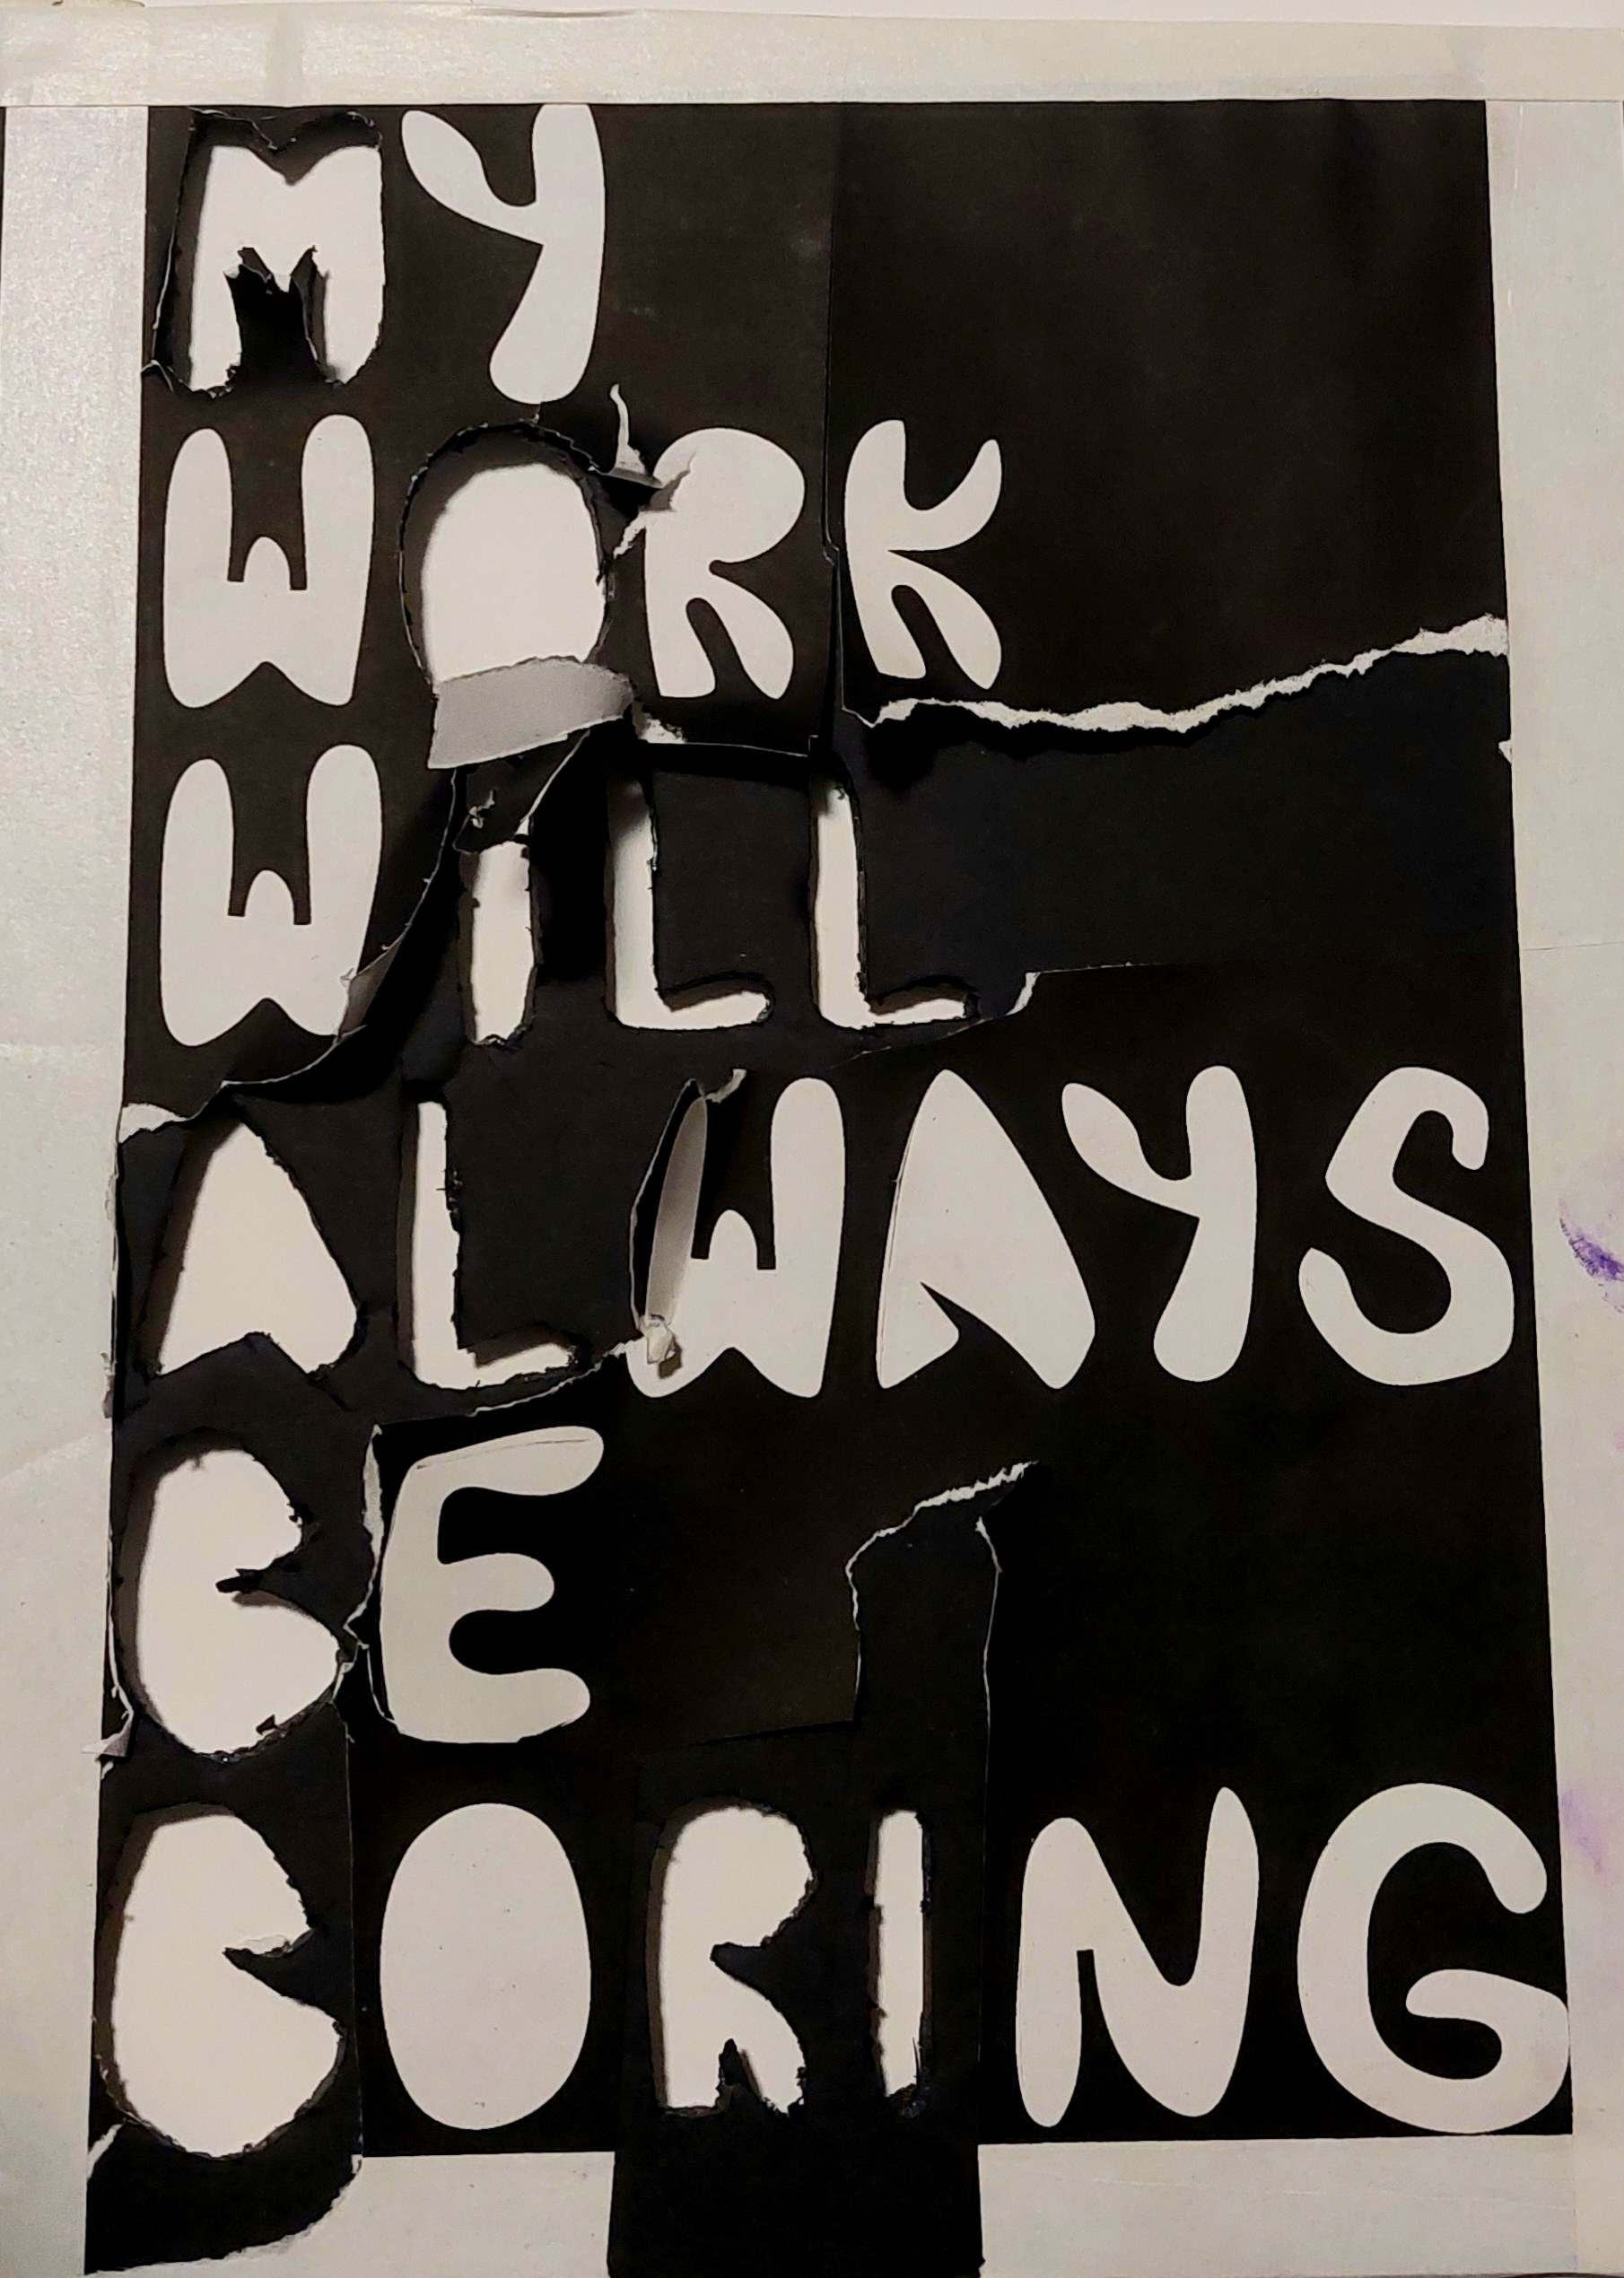 MY
WORK
WILL
ALWAYS
BE
BORING